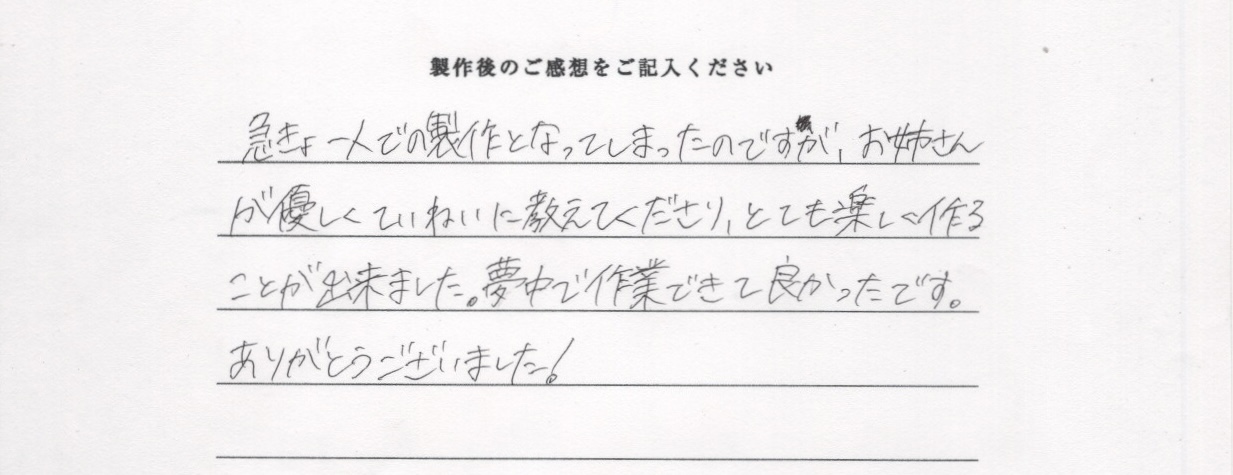 製作後のご感想をご記入ください
急きょ一人での製作となってしまったのですが、お姉さん
が優しくていねいに教えてくださり、とても楽しく作る
ことが出来ました。夢中で作業できて良かったです。
ありがとうございました!